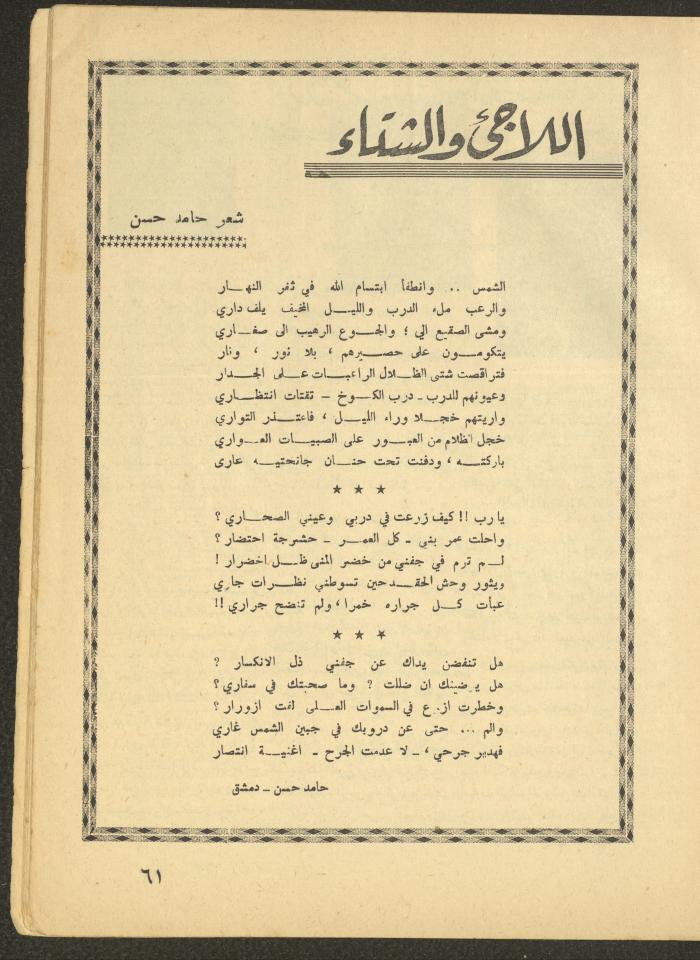 اللاجئ والشتاء
شعر حامد حسن
الشمس .. وانطفأ ابتسام الله في ثغر النهار
والرعب ملء الدرب والليل المخيف يلف داري
ومشى الصقيع الي ؛ والجوع الرهيب الى صغاري
يتكومون على حصيرهم ، بلا نور ، ونار
فتراقصت شتى الظلال الراعبات على الجدار
وعيونهم للدرب ـ درب الكوخ ـ تقتات انتظاري
واريتهم خجلا وراء الليل ، فاعتذر التواري
خجل الظلام من العبور على الصبيات العواري
باركته ، ودفنت تحت حنان جانحتيه عارى
★ ★ ★
يا رب !! كيف زرعت في دربي وعيني الصحاري ؟
واحلت عمر بني ـ كل العمر ـ حشرجة احتضار ؟
لم ترم في جفني من خضر المنى ظل اخضرار !
ويثور وحش الحقد حين تسوطني نظرات جاري
عبأت كل جراره خمرا ، ولم تنضح جراري !!
★ ★ ★
هل تنفضن يداك عن جفني ذل الانكسار ؟
هل يرضينك ان ضللت ? وما صحبتك في سفاري ؟
وخطرت ازرع في السموات العلى لفت ازورار ؟
والم ... حتى عن دروبك في جبين الشمس غاري
فهدير جرحي ، ـ لا عدمت الجرح ـ اغنية انتصار
حامد حسن ـ دمشق
٦١